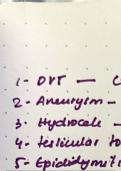 1- DVT —
2- Aneurysm -
3- Hydrocele -
4- testicular to
5- Epididymit